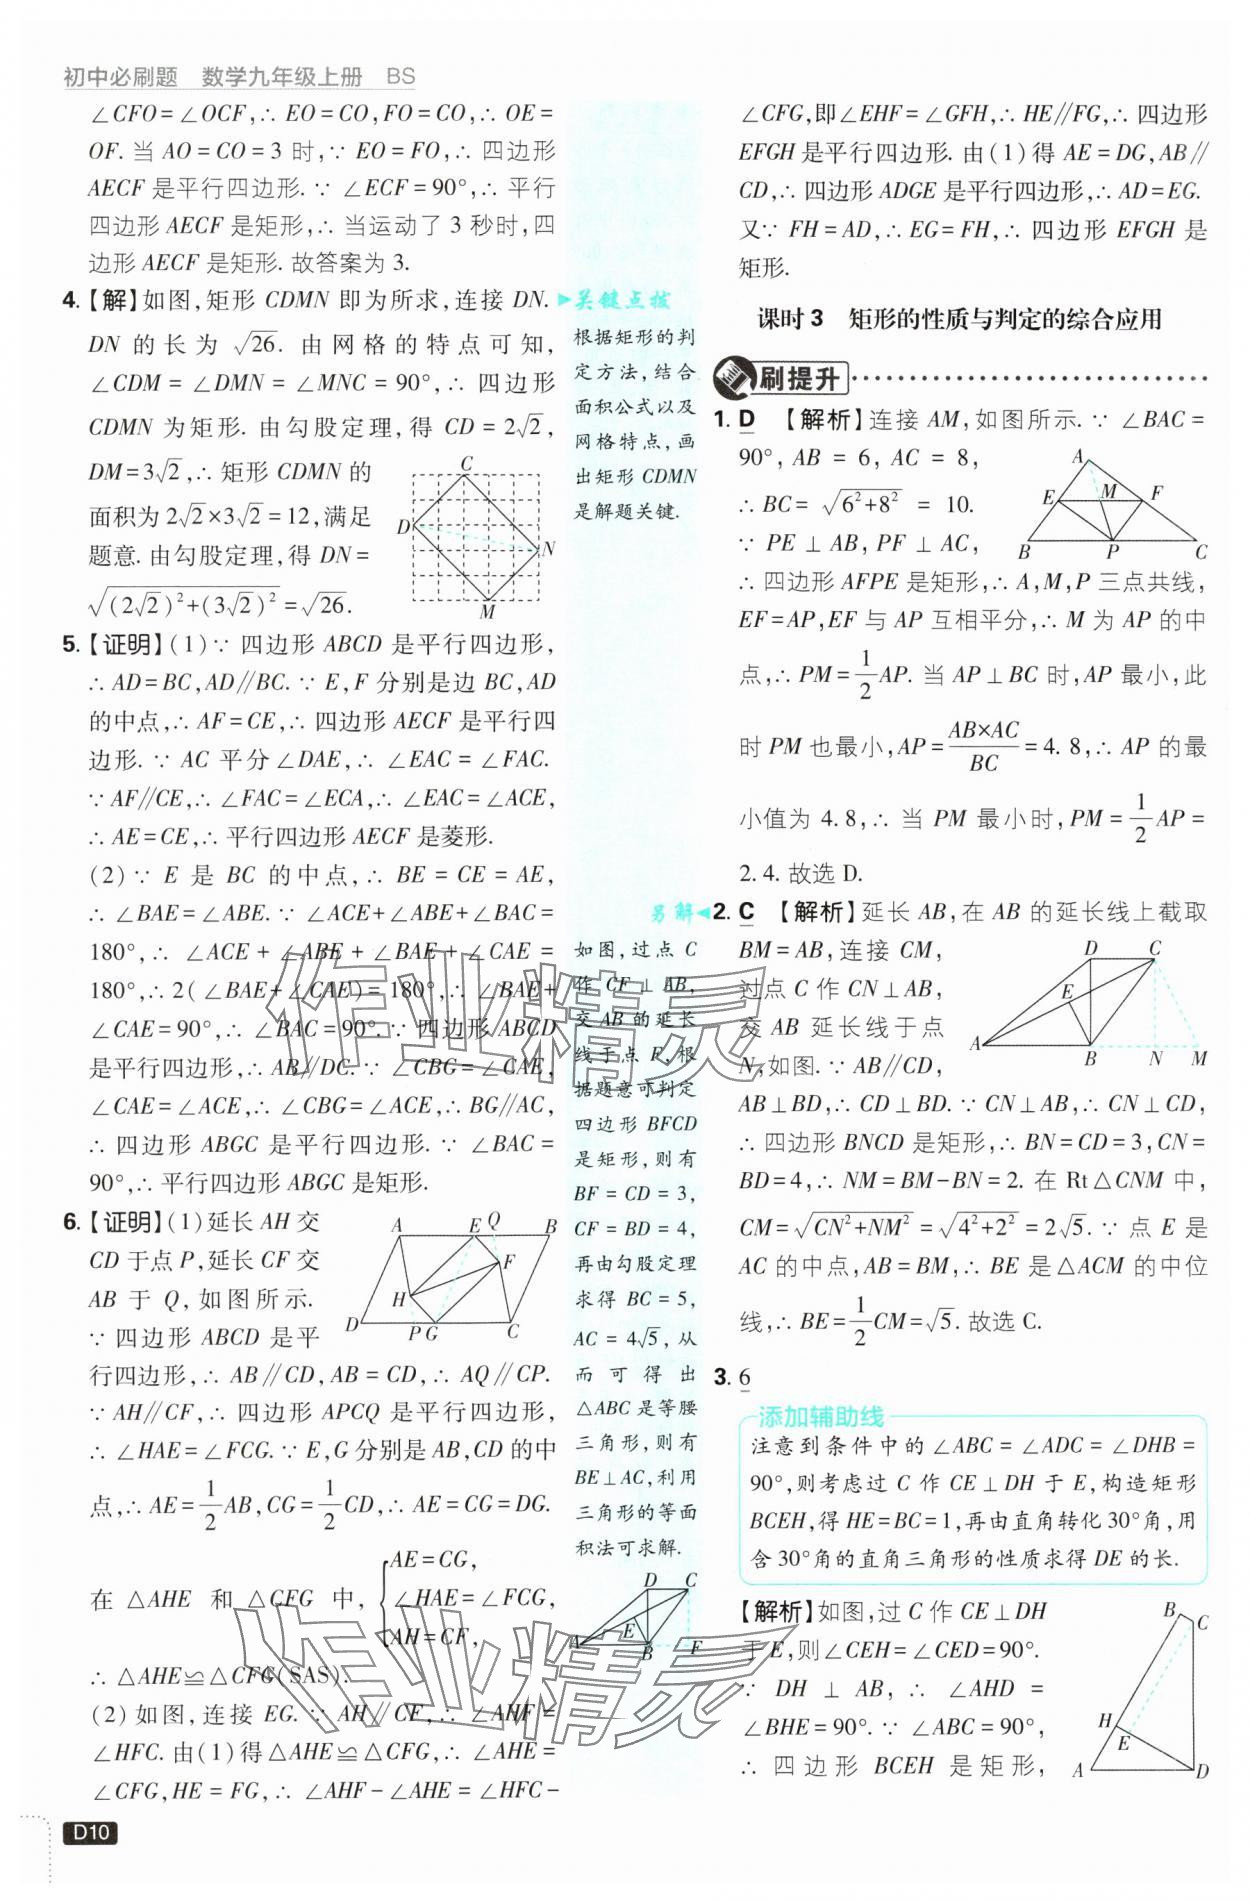 初中必刷题 数学九年级上册 BS
∠CFO=∠OCF,∴EO=CO,FO=CO,∴OE=
OF. 当 AO=CO=3 时,∵EO=FO,∴四边形
AECF 是平行四边形. ∵∠ECF=90°,∴平行
四边形 AECF 是矩形,∴当运动了 3 秒时,四
边形 AECF 是矩形. 故答案为 3.
4.【解】如图,矩形 CDMN 即为所求,连接 DN.
DN 的长为 √26. 由网格的特点可知,
∠CDM=∠DMN=∠MNC=90°,∴四边形
CDMN 为矩形. 由勾股定理,得 CD=2√2,
DM=3√2,∴矩形 CDMN 的
面积为 2√2×3√2=12,满足
题意. 由勾股定理,得 DN=
√((2√2)²+(3√2)²)=√26.
C
D
N
M
5.【证明】(1)∵四边形 ABCD 是平行四边形,
∴AD=BC,AD∥BC. ∵E,F 分别是边 BC,AD
的中点,∴AF=CE,∴四边形 AECF 是平行四
边形. ∵AC 平分∠DAE,∴∠EAC=∠FAC.
∵AF∥CE,∴∠FAC=∠ECA,∴∠EAC=∠ACE,
∴AE=CE,∴平行四边形 AECF 是菱形.
(2)∵E 是 BC 的中点,∴BE=CE=AE,
∴∠BAE=∠ABE. ∵∠ACE+∠ABE+∠BAC=
180°,∴∠ACE+∠ABE+∠BAE+∠CAE=
180°,∴2(∠BAE+∠CAE)=180°,∴∠BAE+
∠CAE=90°,∴∠BAC=90°. ∵四边形 ABCD
是平行四边形,∴AB∥DC. ∵∠CBG=∠CAE,
∠CAE=∠ACE,∴∠CBG=∠ACE,∴BG∥AC,
∴四边形 ABGC 是平行四边形. ∵∠BAC=
90°,∴平行四边形 ABGC 是矩形.
6.【证明】(1)延长 AH 交
CD 于点 P,延长 CF 交
AB 于 Q,如图所示.
∵四边形 ABCD 是平
A E Q B
F
H
D P G C
行四边形,∴AB∥CD,AB=CD,∴AQ∥CP.
∵AH∥CF,∴四边形 APCQ 是平行四边形,
∴∠HAE=∠FCG. ∵E,G 分别是 AB,CD 的中
点,∴AE=1/2AB,CG=1/2CD,∴AE=CG=DG.
在△AHE 和△CFG 中,{AE=CG,
∠HAE=∠FCG,
AH=CF,
∴△AHE≌△CFG(SAS).
(2)如图,连接 EG. ∵AH∥CF,∴∠AHF=
∠HFC. 由(1)得△AHE≌△CFG,∴∠AHE=
∠CFG,HE=FG,∴∠AHF-∠AHE=∠HFC-
D10
关键点拨
根据矩形的判
定方法,结合
面积公式以及
网格特点,画
出矩形 CDMN
是解题关键.
另解
如图,过点 C
作 CF⊥AB,
交 AB 的延长
线于点 F,根
据题意可判定
四边形 BFCD
是矩形,则有
BF=CD=3,
CF=BD=4,
再由勾股定理
求得 BC=5,
AC=4√5,从
而可得出
△ABC 是等腰
三角形,则有
BE⊥AC,利用
三角形的等面
积法可求解.
D C
E
A B F
∠CFG,即∠EHF=∠GFH,∴HE∥FG,∴四边形
EFGH 是平行四边形. 由(1)得 AE=DG,AB∥
CD,∴四边形 ADGE 是平行四边形,∴AD=EG.
又∵FH=AD,∴EG=FH,∴四边形 EFGH 是
矩形.
课时 3 矩形的性质与判定的综合应用
刷提升
1. D 【解析】连接 AM,如图所示. ∵∠BAC=
90°,AB=6,AC=8,
∴BC=√(6²+8²)=10.
∵PE⊥AB,PF⊥AC,
A
E M F
B P C
∴四边形 AFPE 是矩形,∴A,M,P 三点共线,
EF=AP,EF 与 AP 互相平分,∴M 为 AP 的中
点,∴PM=1/2AP. 当 AP⊥BC 时,AP 最小,此
时 PM 也最小,AP=(AB×AC)/BC=4.8,∴AP 的最
小值为 4.8,∴当 PM 最小时,PM=1/2AP=
2.4. 故选 D.
2. C 【解析】延长 AB,在 AB 的延长线上截取
BM=AB,连接 CM,
过点 C 作 CN⊥AB,
交 AB 延长线于点
N,如图. ∵AB∥CD,
D C
E
A B N M
AB⊥BD,∴CD⊥BD. ∵CN⊥AB,∴CN⊥CD,
∴四边形 BNCD 是矩形,∴BN=CD=3,CN=
BD=4,∴NM=BM-BN=2. 在 Rt△CNM 中,
CM=√(CN²+NM²)=√(4²+2²)=2√5. ∵点 E 是
AC 的中点,AB=BM,∴BE 是△ACM 的中位
线,∴BE=1/2CM=√5. 故选 C.
3. 6
添加辅助线
注意到条件中的∠ABC=∠ADC=∠DHB=
90°,则考虑过 C 作 CE⊥DH 于 E,构造矩形
BCEH,得 HE=BC=1,再由直角转化 30°角,用
含 30°角的直角三角形的性质求得 DE 的长.
【解析】如图,过 C 作 CE⊥DH
于 E,则∠CEH=∠CED=90°.
∵DH⊥AB,∴∠AHD=
∠BHE=90°. ∵∠ABC=90°,
∴四边形 BCEH 是矩形,
B
C
H
E
A D
作业精灵
作业精灵